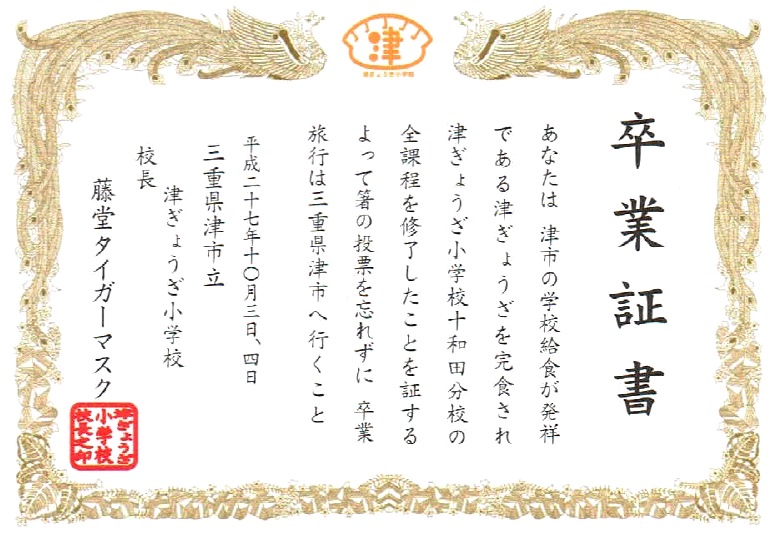 津
津ぎょうざ小学校
卒業証書
あなたは 津市の学校給食が発祥
である津ぎょうざを完食され
津ぎょうざ小学校十和田分校の
全課程を修了したことを証する
よって箸の投票を忘れずに 卒業
旅行は三重県津市へ行くこと
平成二十七年十〇月三日、四日
三重県津市立
津ぎょうざ小学校
校長
藤堂タイガーマスク
津ぎょうざ
小学校
校長之印